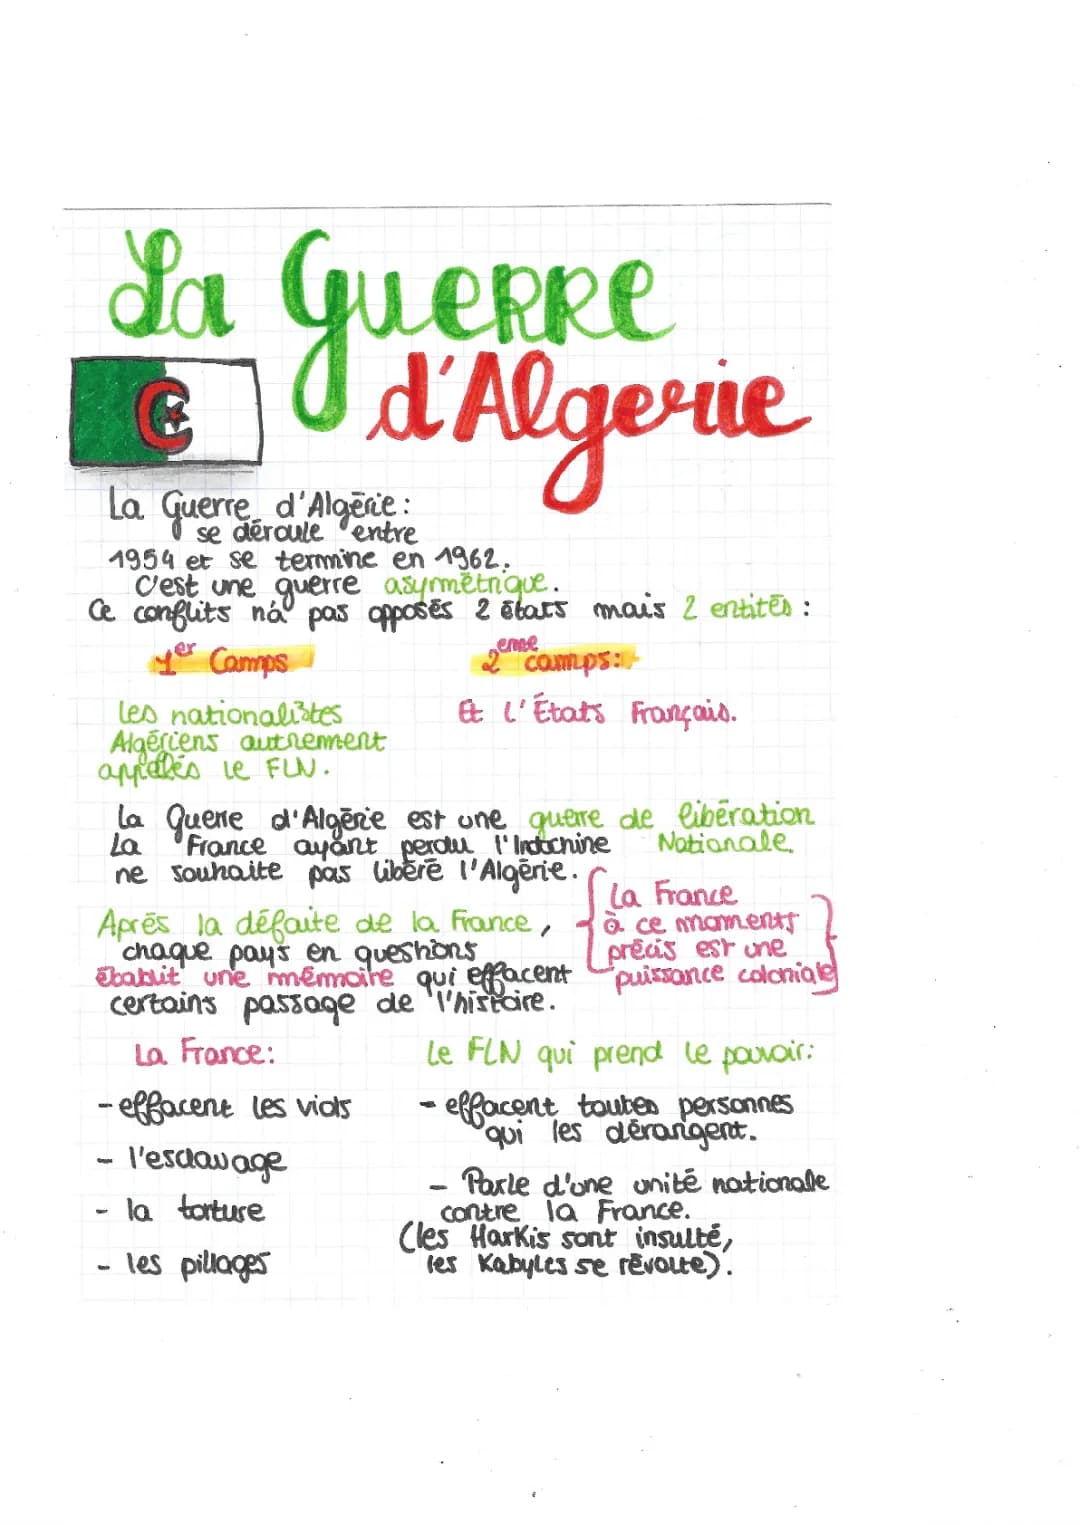 La Guerre
d'Algerie
La Guerre d'Algérie :
se déroule entre
1954 et se termine en 1962.
C'est une guerre asymétrique.
Ce conflits n'a pas opposés 2 états mais 2 entités :
1er Camps
2eme camps :
Les nationalistes
Algériens autrement
appelés le FLN.
Et l'États Français.
La Guerre d'Algérie est une guerre de libération
Nationale.
La France ayant perdu l'Indochine
ne souhaite pas libéré l'Algérie.
La France
à ce moments
précis est une
puissance coloniale
Après la défaite de la France,
chaque pays en questions
établit une mémoire qui effacent
certains passage de l'histoire.
La France :
- effacent les viols
- l'esclavage
- la torture
- les pillages
Le FLN qui prend le pouvoir :
- effacent toutes personnes
qui les dérangent.
- Parle d'une unité nationale
contre la France.
(les Harkis sont insulté,
les Kabyles se révolte).